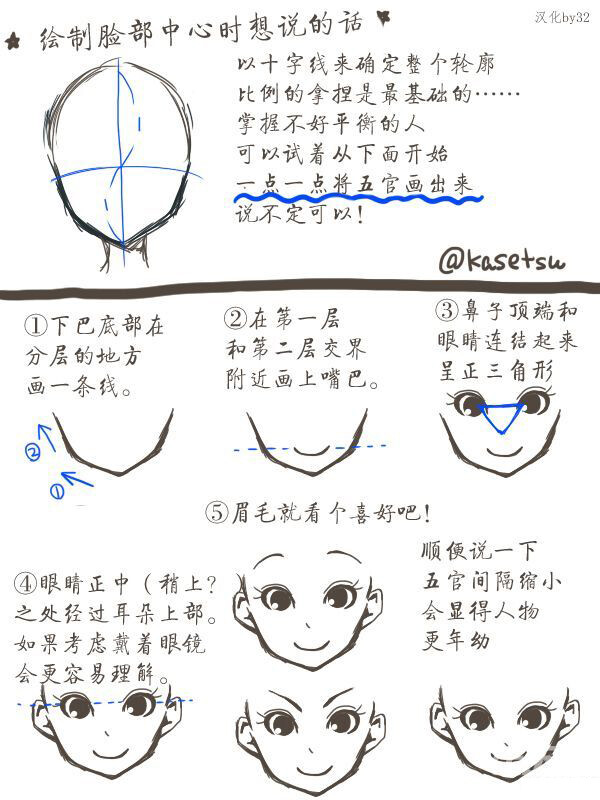 汉化by32
绘制脸部中心时想说的话
以十字线来确定整个轮廓
比例的拿捏是最基础的……
掌握不好平衡的人
可以试着从下面开始
一点一点将五官画出来
说不定可以！
@kasetsu
①下巴底部在
分层的地方
画一条线。
②
①
②在第一层
和第二层交界
附近画上嘴巴。
③鼻子顶端和
眼睛连结起来
呈正三角形
④眼睛正中（稍上？）
之处经过耳朵上部。
如果考虑戴着眼镜
会更容易理解。
⑤眉毛就看个喜好吧！
顺便说一下
五官间隔缩小
会显得人物
更年幼